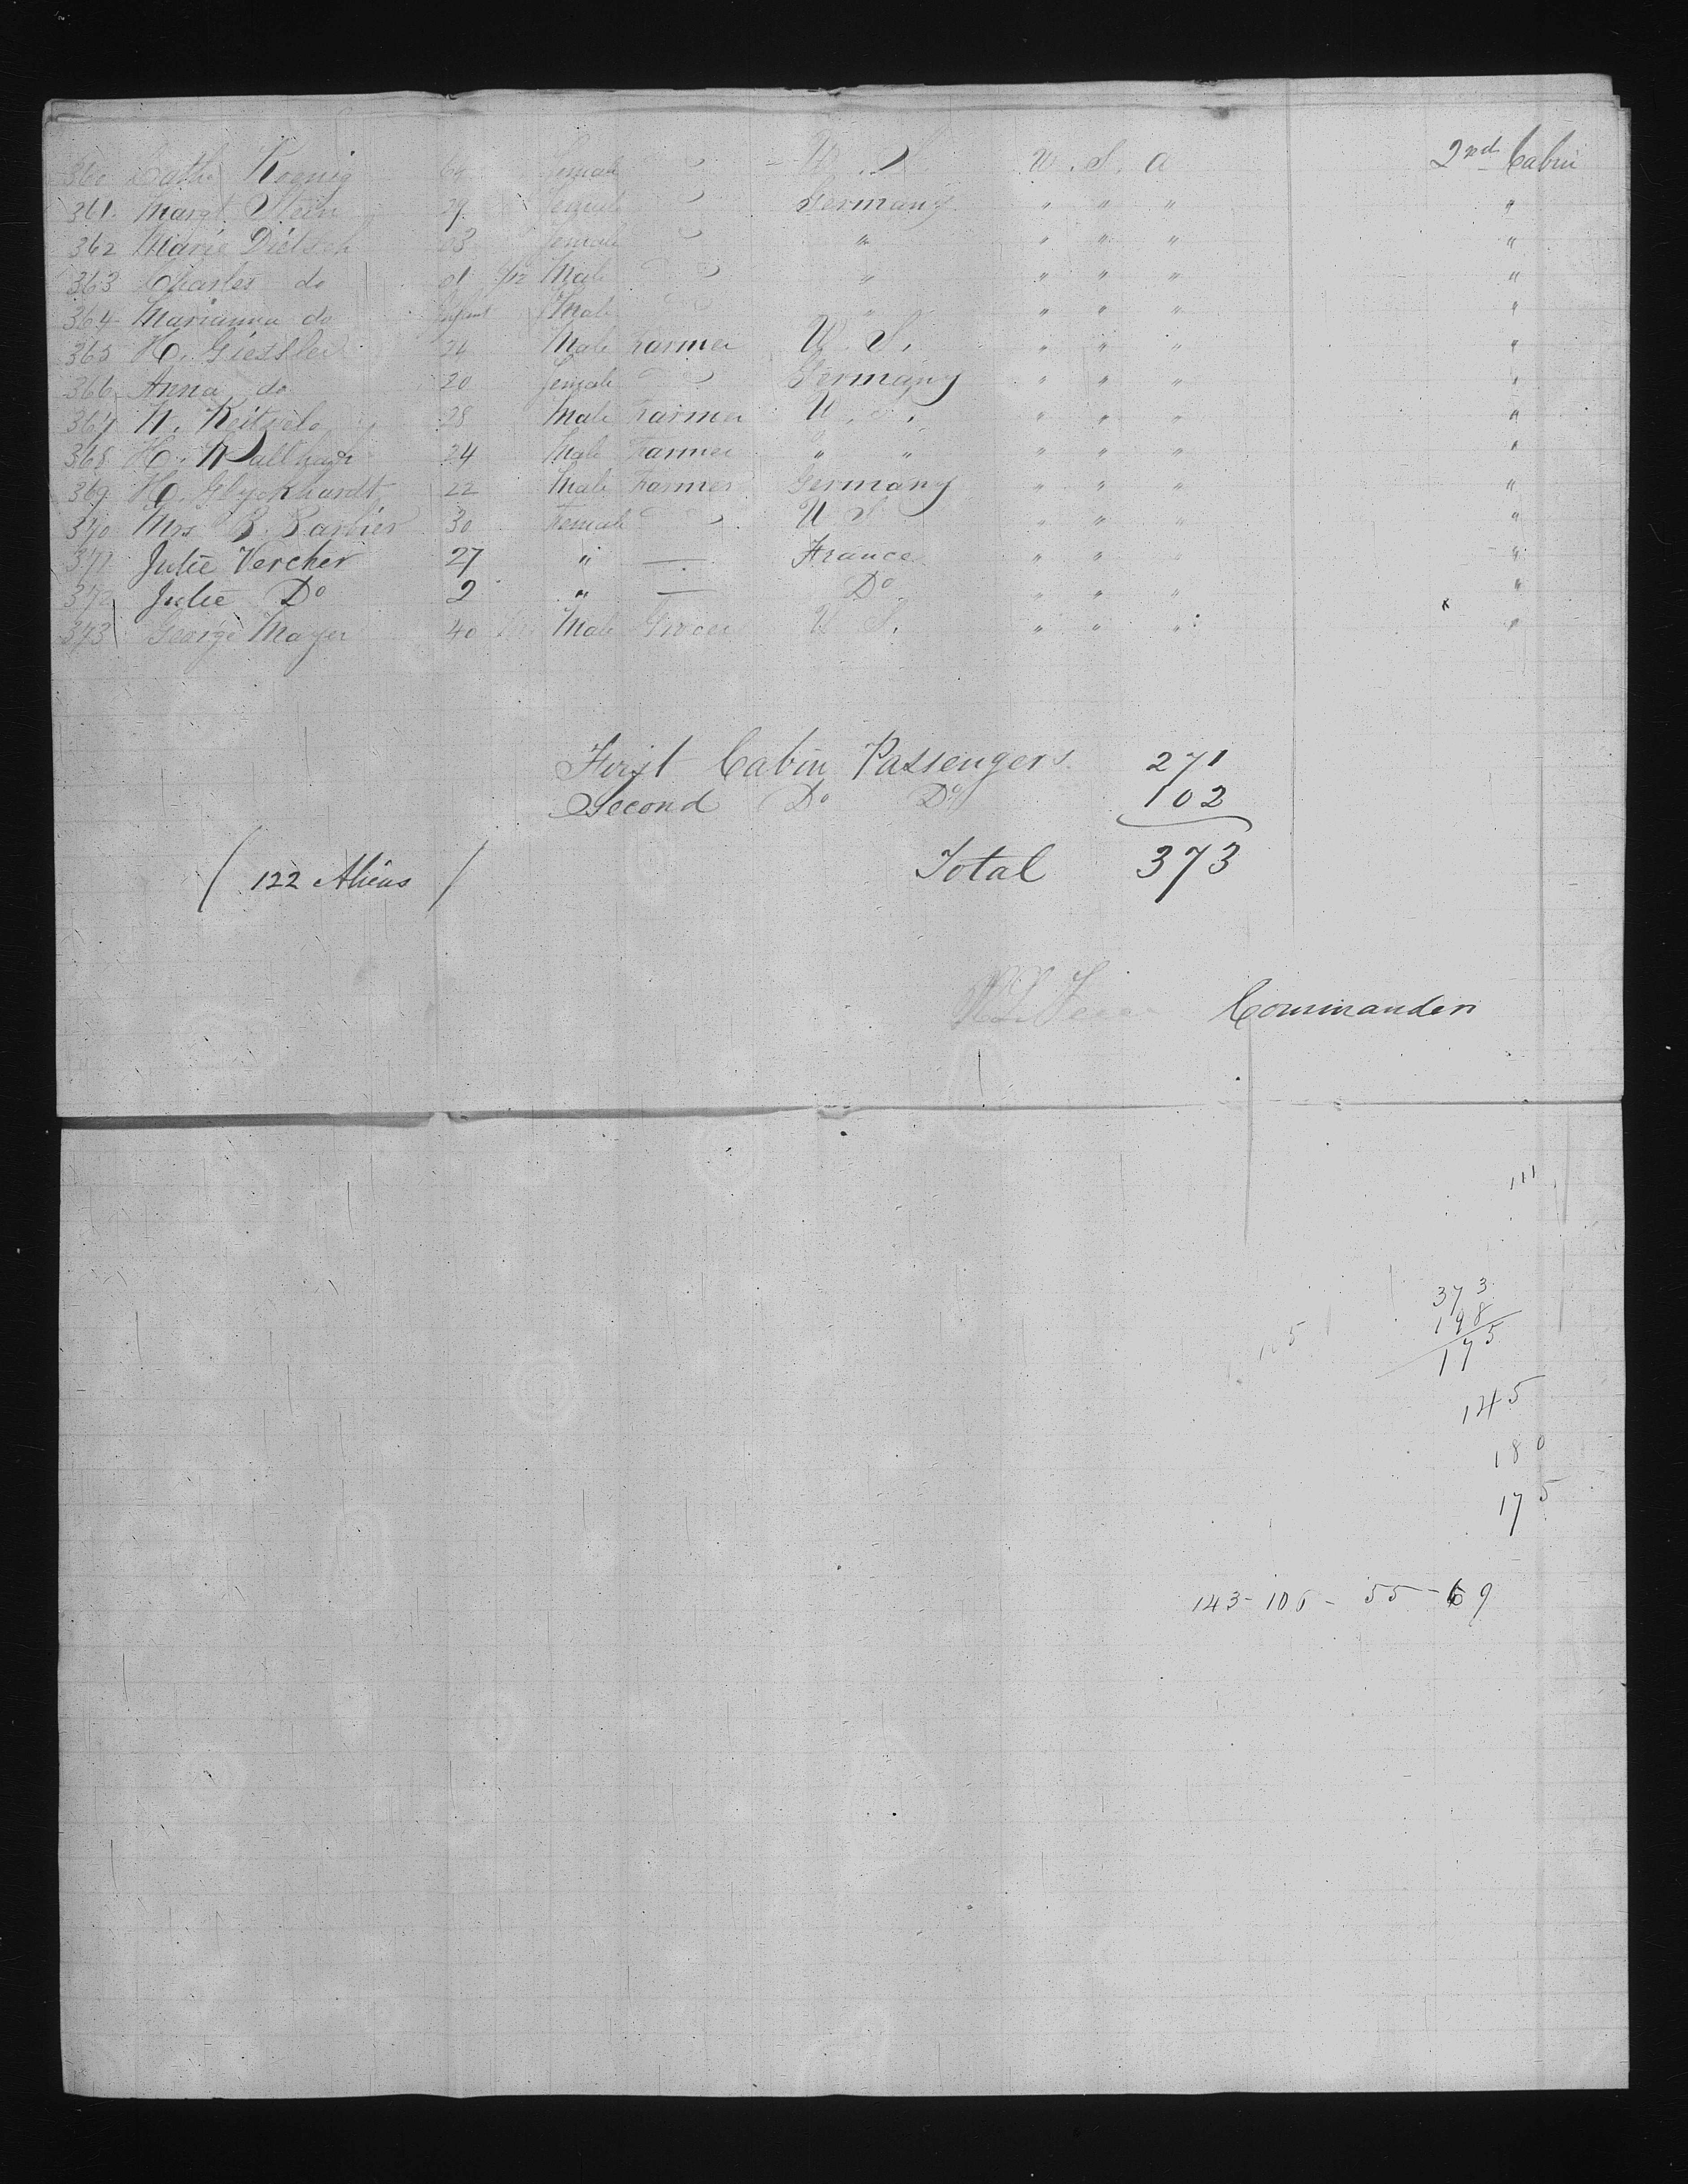 360 Cath. Koenig 64 Female Do U. S. U. S. A 2nd Cabin
361. Margt. Stein 29 Female Do Germany " " " "
362 Marie Dietsch 23 Female Do " " " " "
363 Charles do 01 Male Do " " " " "
364 Marianna do Infant Male Do " " " " "
365 H. Giessler 24 Male Farmer U. S. " " " "
366 Anna do 20 Female Do Germany " " " "
367 28 Male Farmer U. S. " " " "
368 H. 24 Male Farmer " " " " " "
369 H. Glyckhardt 22 Male Farmer Germany " " " "
370 Mrs B. Barbier 30 Female Do U S " " " "
371 Julie Vercher 27 " — France " " " "
372 Julie Do 2 " — Do " " " x "
373 George Mayer 40 Male Grocer U S. " " " "
First Cabin Passengers. 271
Second Do Do 102
Total 373
( 122 Aliens )
Commander
111
373
198
175
105
145
180
175
143 - 106 - 55 - 69